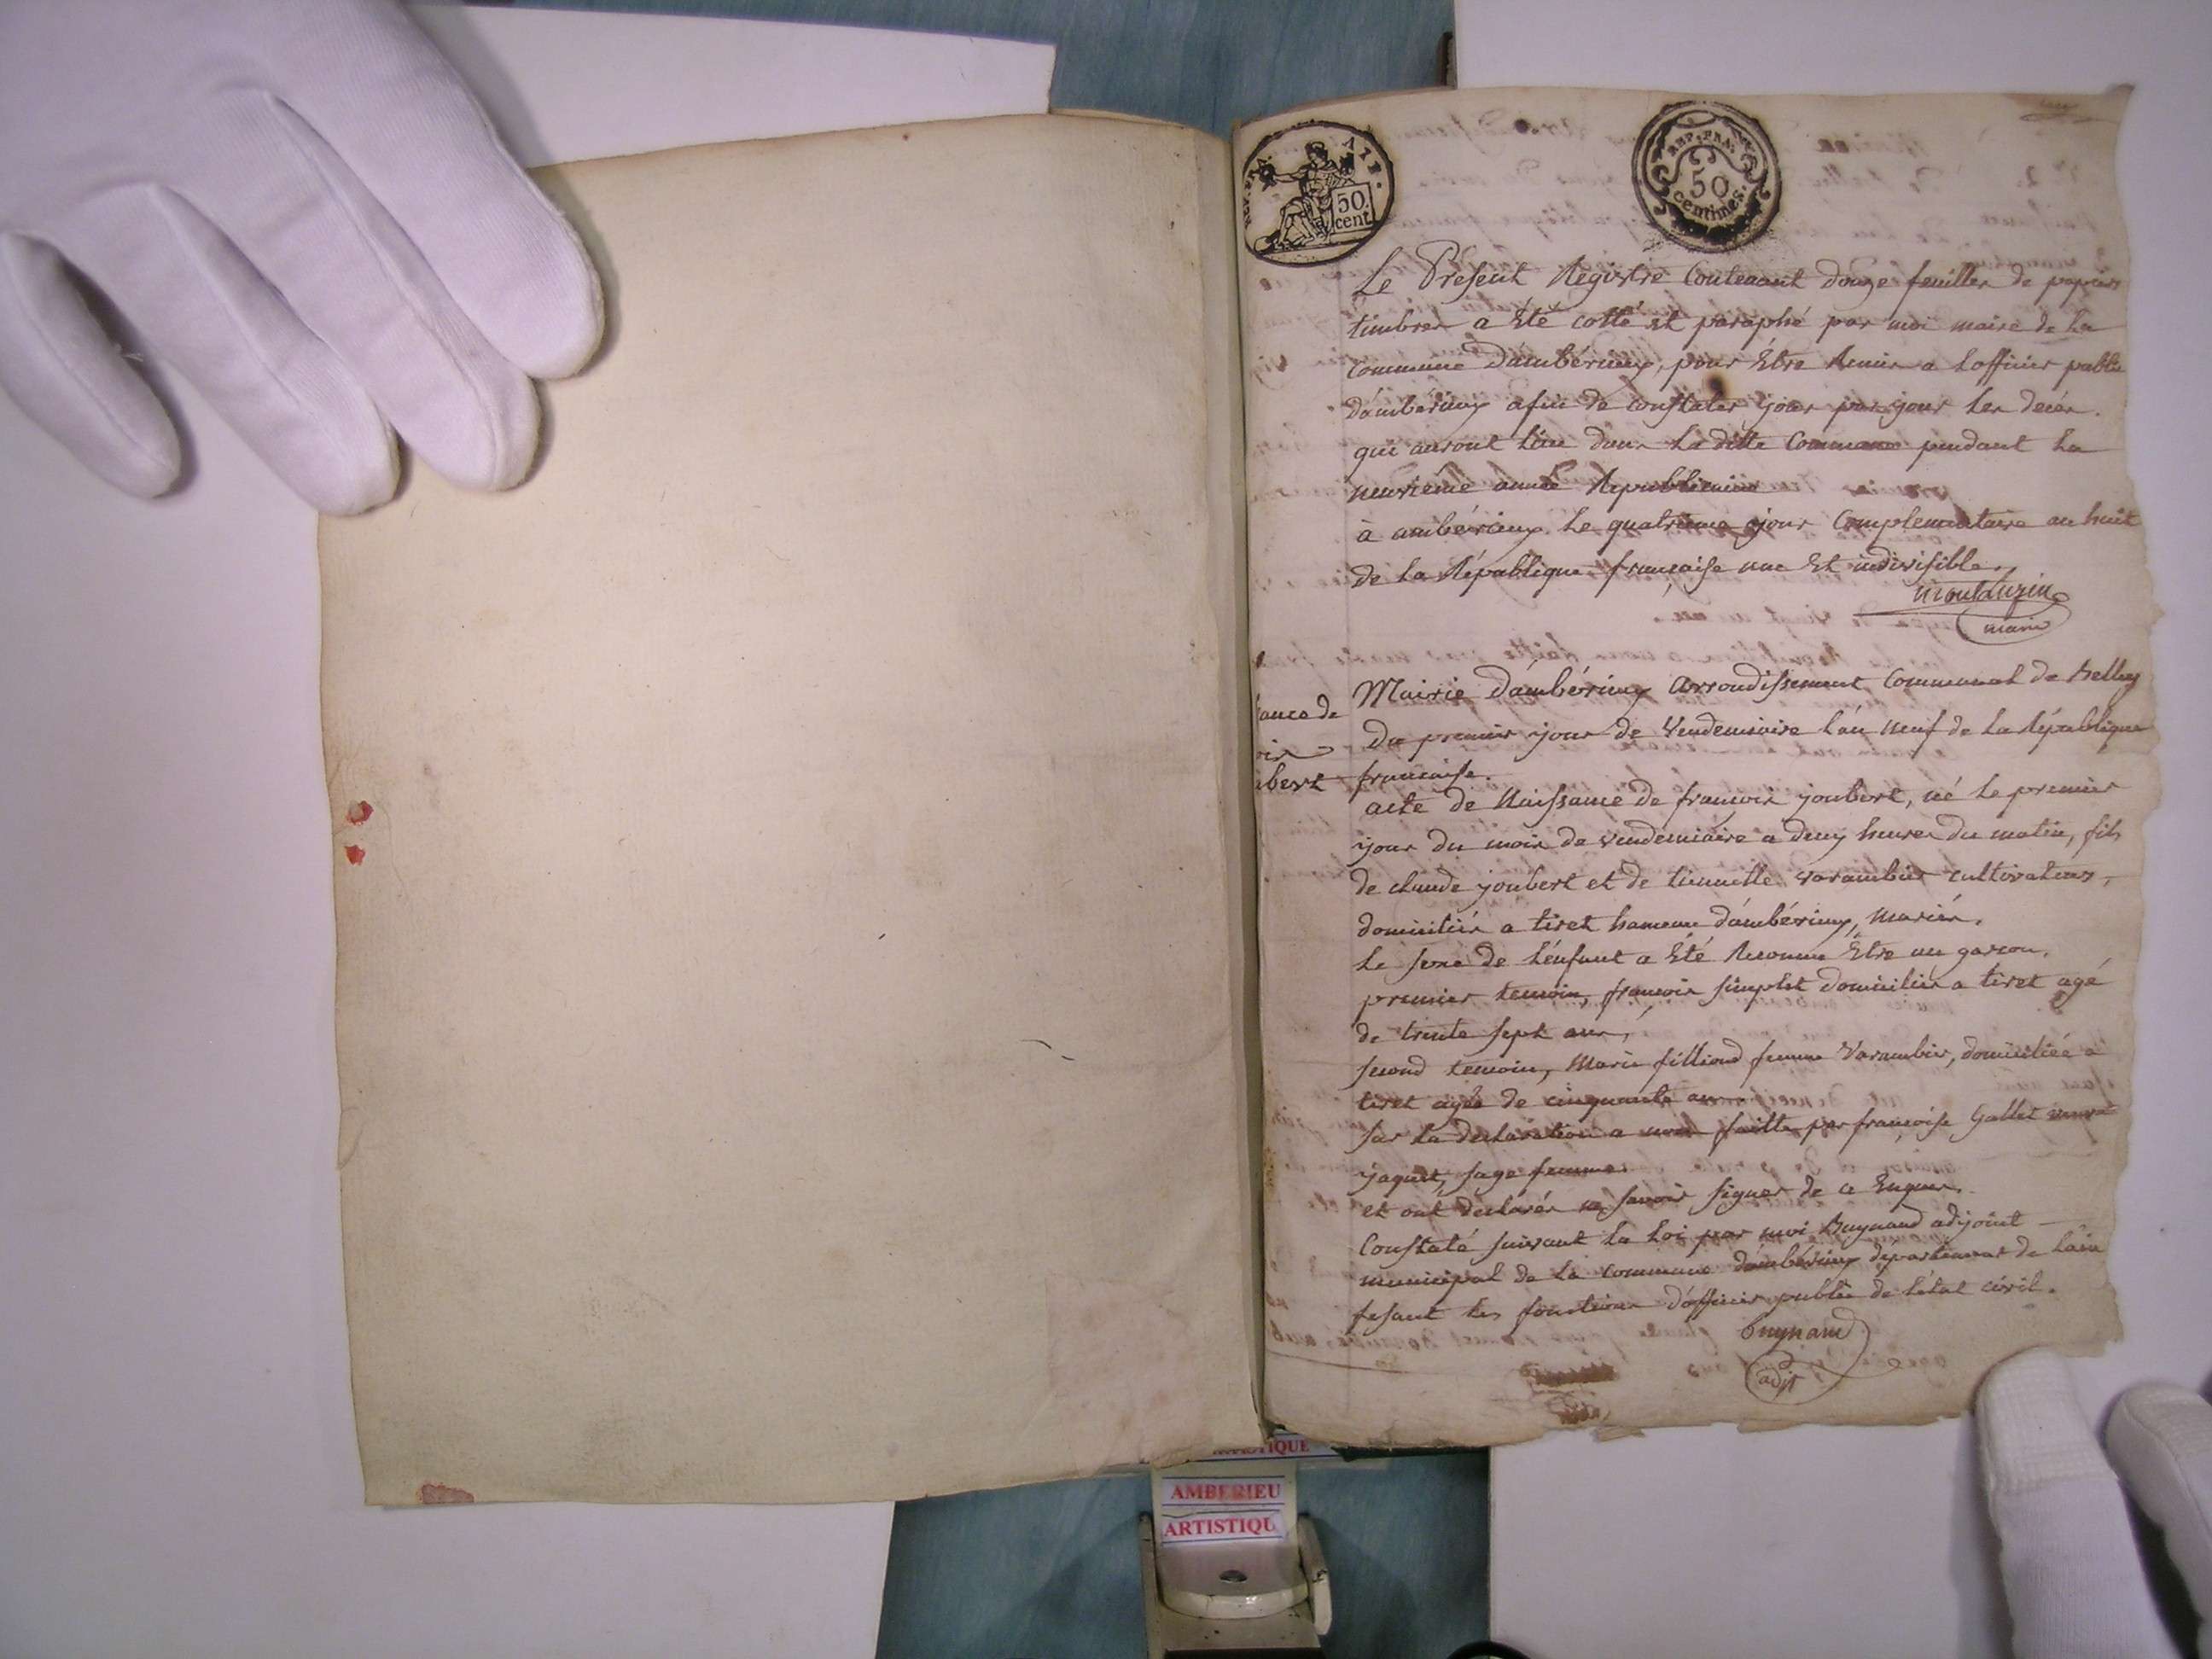 REP. FRA. AIN.
50
cent
REP. FRA.
50
centimes.
Le Présent Registre Contenant douze feuilles de papiers
timbres a Eté cotté et paraphé par moi maire de la
commune d'ambérieux, pour Etre Remis a l'officier public
d'ambérieux afin de constater jour par jour les decés
qui auront lieu dans la ditte Commune pendant la
neuvieme année Republicaine
à ambérieux le quatrieme jour Complementaire an huit
de la République française une Et indivisible.
maire
ance de
ois
bert
Mairie d'ambérieux arrondissement Communal de Belley
Du premier jour de Vendemiaire l'an neuf de la République
française.
acte de Naissance de francois joubert, né le premier
jour du mois de vendemiaire a deux heures du matin, fils
de claude joubert et de tiennette varambier cultivateurs,
domiciliés a tiret hameau d'ambérieux, mariés.
le sexe de l'enfant a Eté Reconnu Etre un garcon.
premier temoin, francois simplet domicilié a tiret agé
de trente sept ans,
second temoin, Marie filliond femme Varambier, domiciliée a
tiret agée de cinquante ans
sur la declaration a nous faitte par françoise Gallet veuve
jaquet, sage femme
et ont declarés ne savoir signer de ce Enquis.
Constaté suivant la loi par moi Buynand adjoint
municipal de la commune d'ambérieux département de l'ain
fesant les fonctions d'officier public de l'état civil.
Buynand
adjt
ARTISTIQUE
AMBERIEU
ARTISTIQU